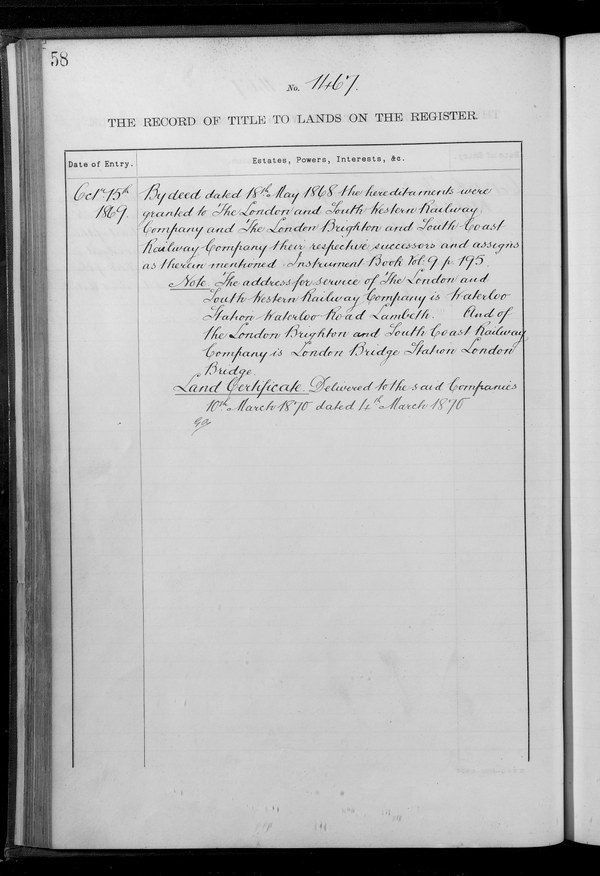 58
No. 1467.
THE RECORD OF TITLE TO LANDS ON THE REGISTER.
Date of Entry.
Estates, Powers, Interests, &c.
Octr 15th
1869.
By deed dated 18th May 1868 the hereditaments were
granted to The London and South Western Railway
Company and The London Brighton and South Coast
Railway Company their respective successors and assigns
as therein mentioned. Instrument Book Vol: 9 p 195
Note. The address for service of The London and
South Western Railway Company is Waterloo
Station Waterloo Road Lambeth. And of
the London Brighton and South Coast Railway
Company is London Bridge Station London
Bridge.
Land Certificate. Delivered to the said Companies
10th March 1870 dated 4th March 1870